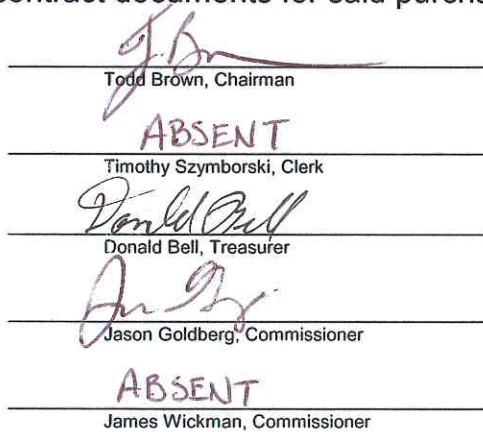 contract documents for said purcha
T. Br
Todd Brown, Chairman
ABSENT
Timothy Szymborski, Clerk
Donald Bell
Donald Bell, Treasurer
Jason Goldberg, Commissioner
ABSENT
James Wickman, Commissioner